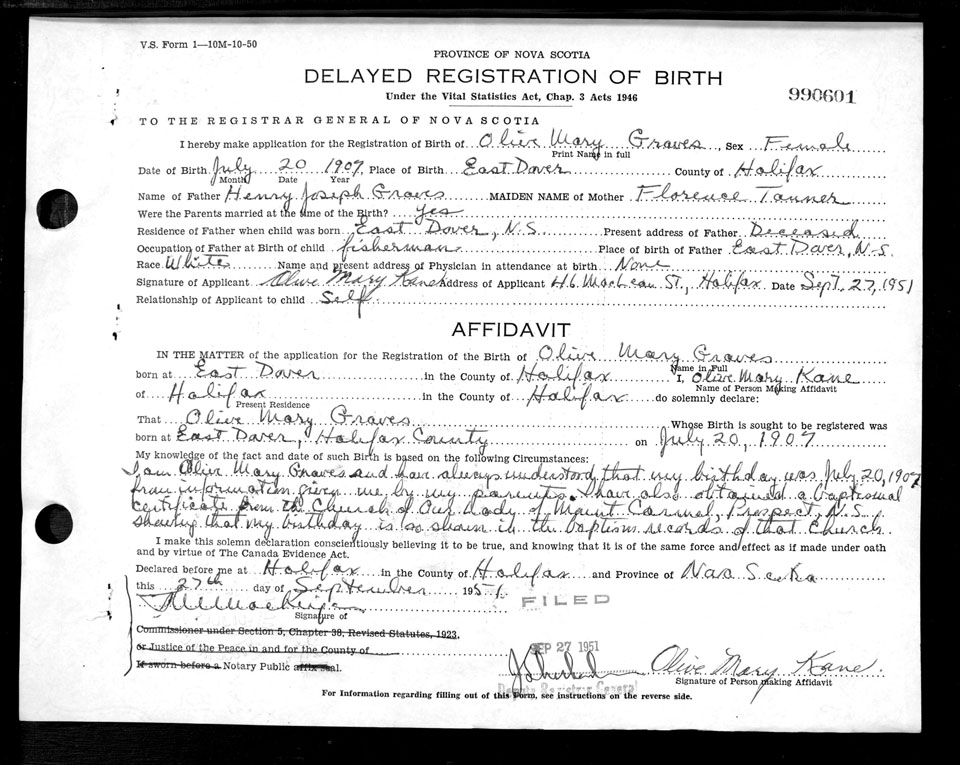 V.S. Form 1—10M-10-50
PROVINCE OF NOVA SCOTIA
DELAYED REGISTRATION OF BIRTH
Under the Vital Statistics Act, Chap. 3 Acts 1946
990601
TO THE REGISTRAR GENERAL OF NOVA SCOTIA
I hereby make application for the Registration of Birth of Olive Mary Graves, Sex Female
Print Name in full
Date of Birth July 20 1907 Place of Birth East Dover County of Halifax
Month Date Year
Name of Father Henry Joseph Graves MAIDEN NAME of Mother Florence Tanner
Were the Parents married at the time of the Birth? Yes
Residence of Father when child was born East Dover, N.S. Present address of Father Deceased
Occupation of Father at Birth of child fisherman Place of birth of Father East Dover, N.S.
Race White Name and present address of Physician in attendance at birth None
Signature of Applicant Olive Mary Kane Address of Applicant 46 MacLean St., Halifax Date Sept. 27, 1951
Relationship of Applicant to child Self
AFFIDAVIT
IN THE MATTER of the application for the Registration of the Birth of Olive Mary Graves
Name in Full
born at East Dover in the County of Halifax I, Olive Mary Kane
Name of Person Making Affidavit
of Halifax in the County of Halifax do solemnly declare:
Present Residence
That Olive Mary Graves Whose Birth is sought to be registered was
born at East Dover, Halifax County on July 20, 1907
My knowledge of the fact and date of such Birth is based on the following Circumstances:
I am Olive Mary Graves and have always understood that my birthday was July 20, 1907
from information given me by my parents. I have also obtained a baptismal
certificate from the Church of Our Lady of Mount Carmel, Prospect, N.S.
showing that my birthday is so shown in the baptism records of that Church.
I make this solemn declaration conscientiously believing it to be true, and knowing that it is of the same force and effect as if made under oath
and by virtue of The Canada Evidence Act.
Declared before me at Halifax in the County of Halifax and Province of Nova Scotia
this 27th day of September 1951.
FILED
Signature of
Commissioner under Section 5, Chapter 38, Revised Statutes, 1923,
or Justice of the Peace in and for the County of
SEP 27 1951
If sworn before a Notary Public affix seal.
Olive Mary Kane.
Deputy Registrar General
Signature of Person making Affidavit
For Information regarding filling out of this Form, see instructions on the reverse side.